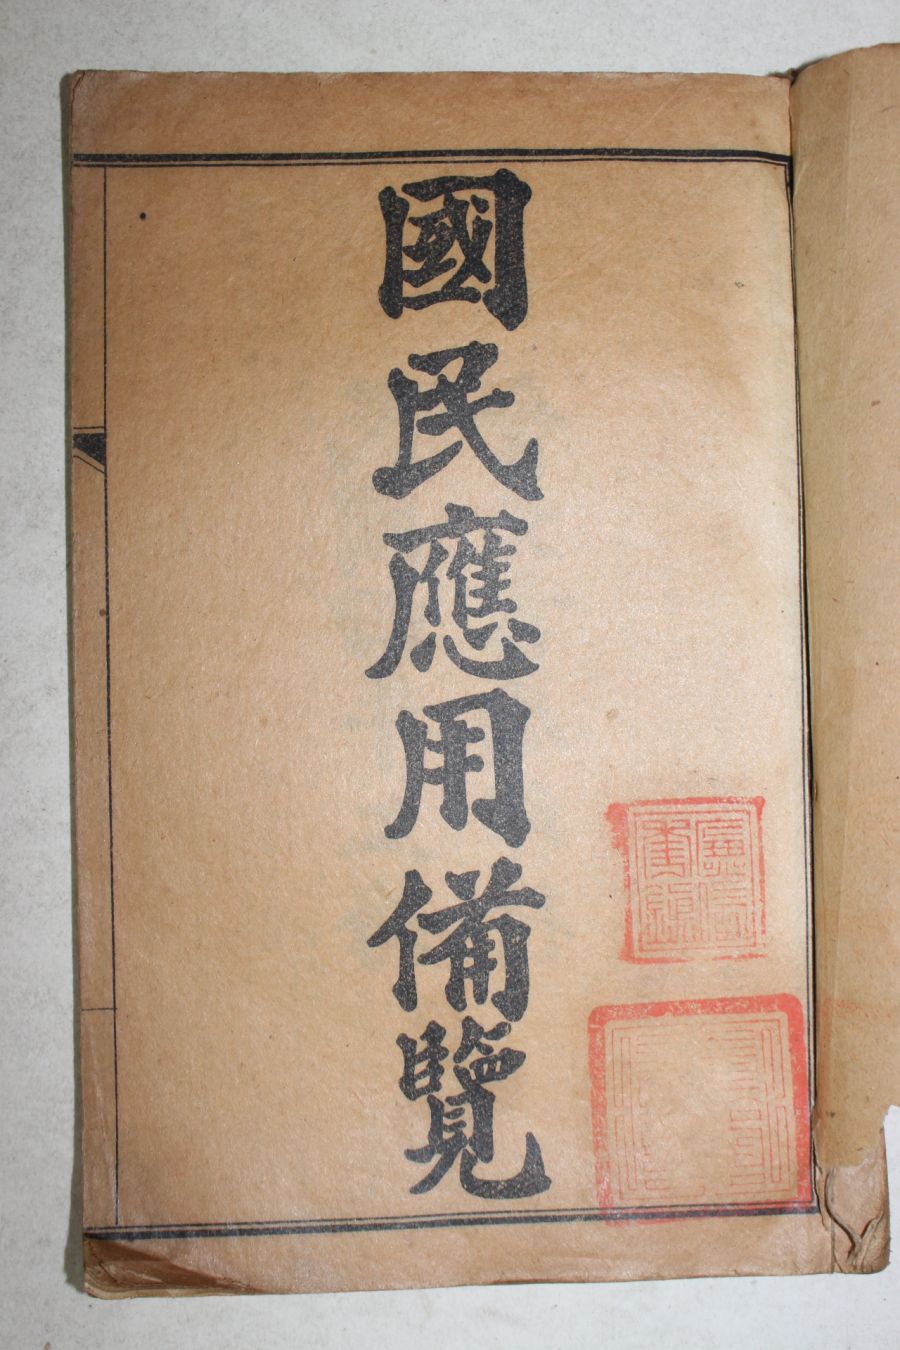 國民應用備覽